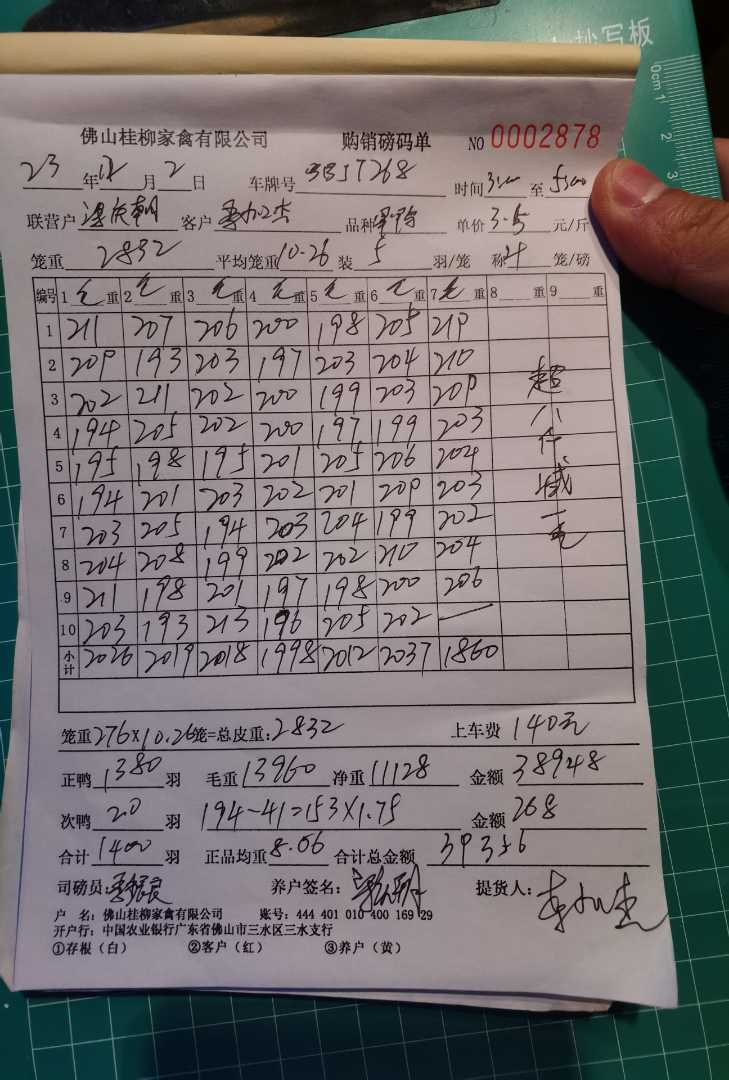 抄写板
0cm 1 2 3
佛山桂柳家禽有限公司 购销磅码单 NO 0002878
23年12月2日 车牌号 时间3:00至5:00
联营户 客户 品种 单价3.5元/斤
笼重2832 平均笼重10.26装5羽/笼 称4笼/磅
编号 1毛重 2毛重 3毛重 4毛重 5毛重 6毛重 7毛重 8重 9重
1 211 207 206 200 198 205 219
2 209 193 203 197 203 204 210
3 202 211 202 200 199 203 209
4 194 205 202 200 197 199 203
5 195 198 195 201 205 206 204
6 194 201 203 202 201 209 203
7 203 205 194 203 204 199 202
8 204 208 199 202 202 210 204
9 211 198 201 197 198 200 206
10 203 193 213 196 205 202 —
小计 2026 2019 2018 1998 2012 2037 1860
超八斤减一毛
笼重276×10.26笼=总皮重:2832 上车费140元
正鸭1380羽 毛重13960净重11128 金额38948
次鸭20羽 194-41=153×1.75 金额268
合计1400羽 正品均重8.06 合计总金额39356
司磅员: 养户签名: 提货人:
户 名:佛山桂柳家禽有限公司 账号:444 401 010 400 169 29
开户行:中国农业银行广东省佛山市三水区三水支行
①存根(白) ②客户(红) ③养户(黄)